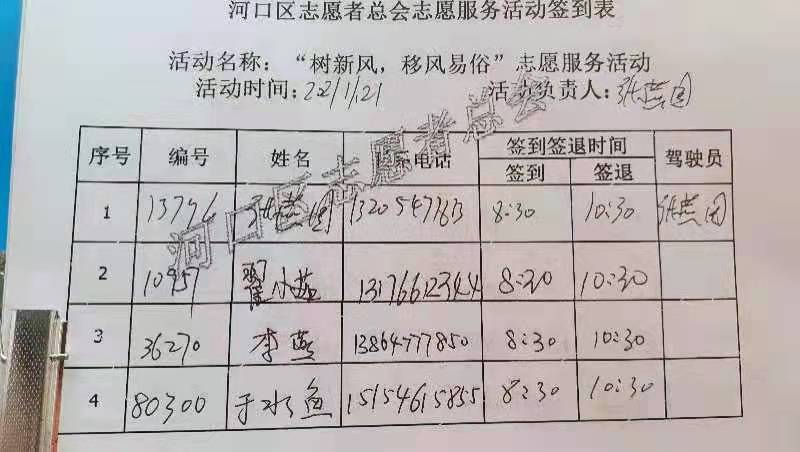 河口区志愿者总会志愿服务活动签到表
活动名称：“树新风，移风易俗”志愿服务活动
活动时间：2021/1/21 活动负责人：张燕团
序号 编号 姓名 联系电话 签到签退时间 驾驶员
签到 签退
1 13796 张燕团 8:30 10:30 张燕团
2 10957 翟小燕 13176612344 8:30 10:30
3 36270 李燕 13864777850 8:30 10:30
4 80300 于水鱼 15154615855 8:30 10:30
河口区志愿者总会